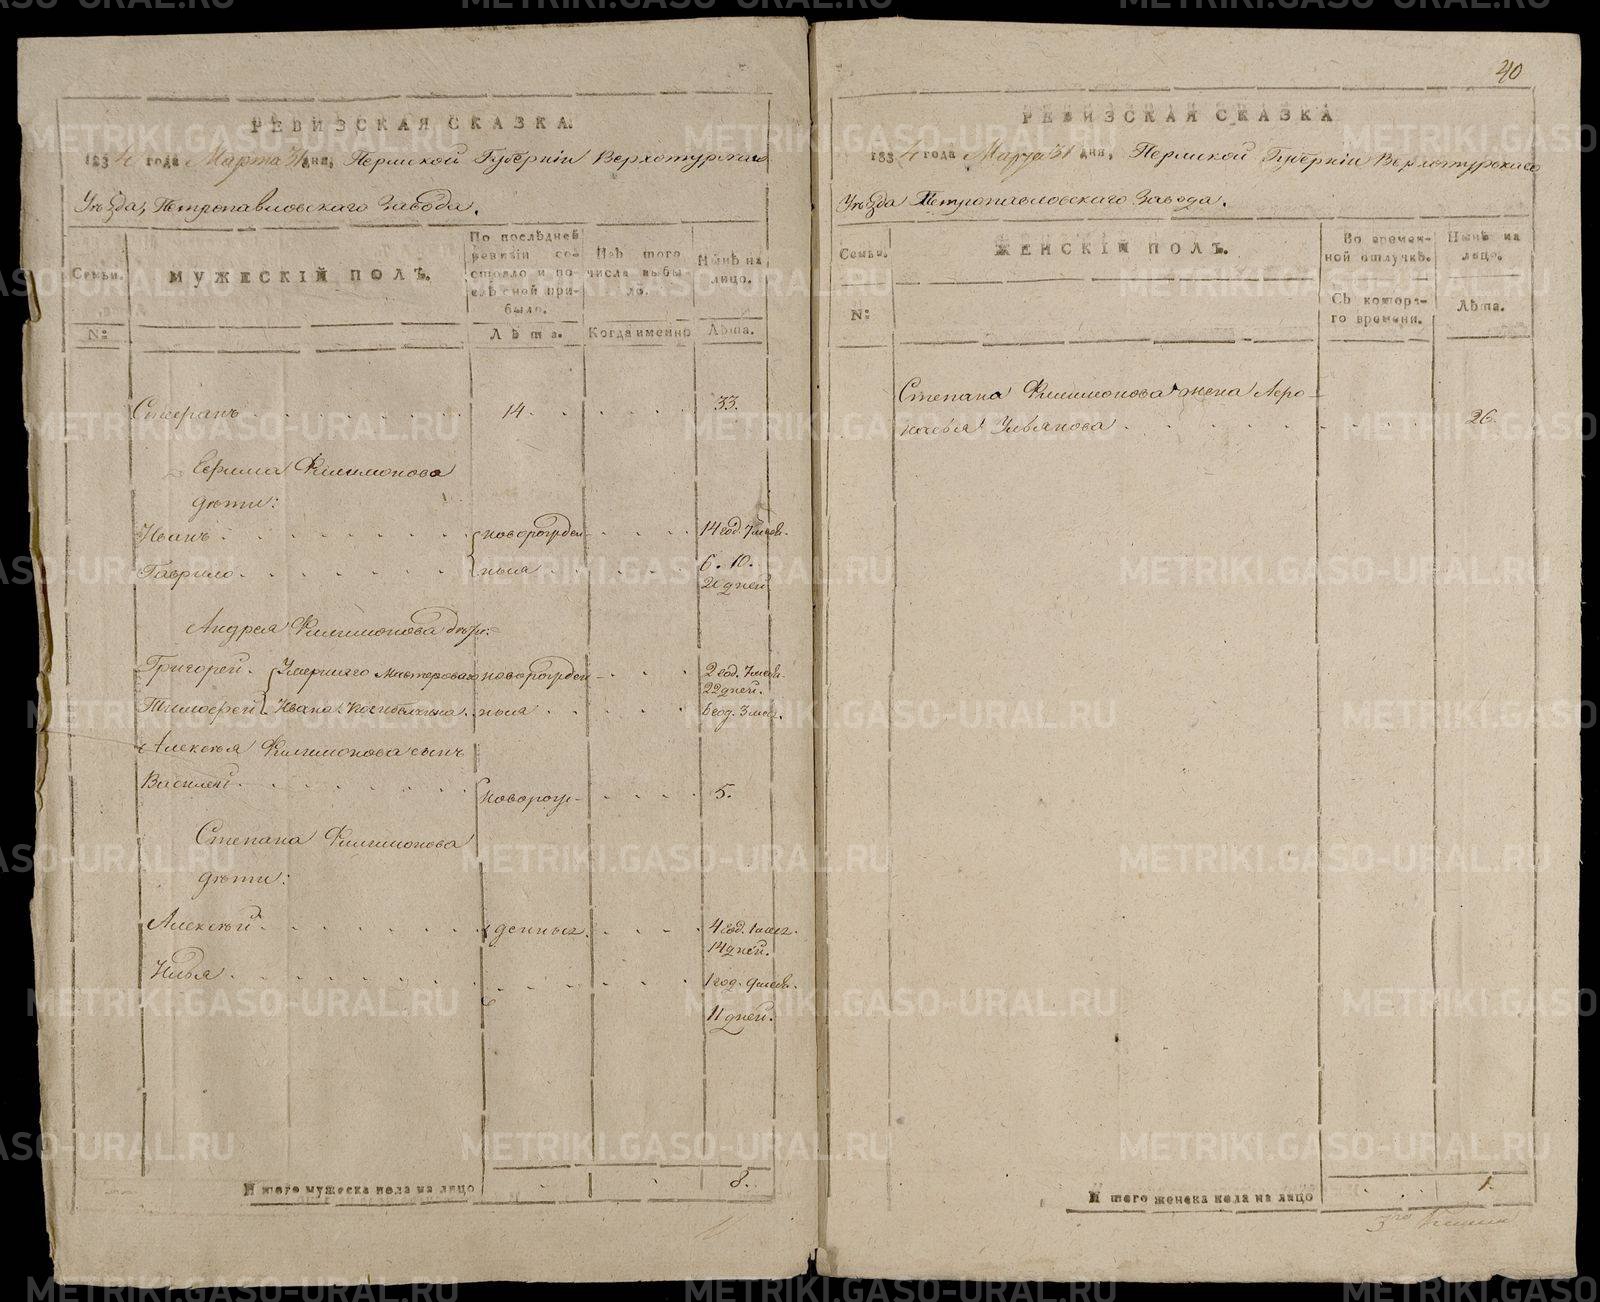 РЕВИЗСКАЯ СКАЗКА.
1834 года Марта 31 дня, Пермской Губернiи Верхотурскаго
Уѣзда, Петропавловскаго Завода.
Семьи.
МУЖЕСКIЙ ПОЛЪ.
По послѣдней ревизiи состояло и послѣ оной прибыло.
Изъ того числа выбыло.
Нынѣ на лицо.
№:
Лѣта.
Когда именно
Лѣта.
Степанъ 14. 33.
Ефима Филимонова
дѣти:
Иванъ новорожден- 14 год. 7 мѣся.
Гаврило ныя 6. 10.
20 дней
Андрея Филимонова дѣти:
Григорей новорожден- 2 год. 7 мѣся.
22 дней.
Тимофей Ивана ныя 6 год. 3 мѣся.
Алексѣя Филимонова сынъ
Василей новорож- 5.
Степана Филимонова
дѣти:
Алексѣй денныя 4 год. 1 мѣся.
14 дней.
Илья 1 год. 9 мѣся.
11 дней.
И того мужеска пола на лицо 8.
40
РЕВИЗСКАЯ СКАЗКА
1834 года Марта 31 дня, Пермской Губернiи Верхотурскаго
Уѣзда Петропавловскаго Завода.
Семьи.
ЖЕНСКIЙ ПОЛЪ.
Во временной отлучкѣ.
Нынѣ на лицо.
№:
Съ котораго времени.
Лѣта.
Степана Филимонова жена Афро-
насья Ульянова 26.
И того женска пола на лицо 1.
METRIKI.GASO-URAL.RU